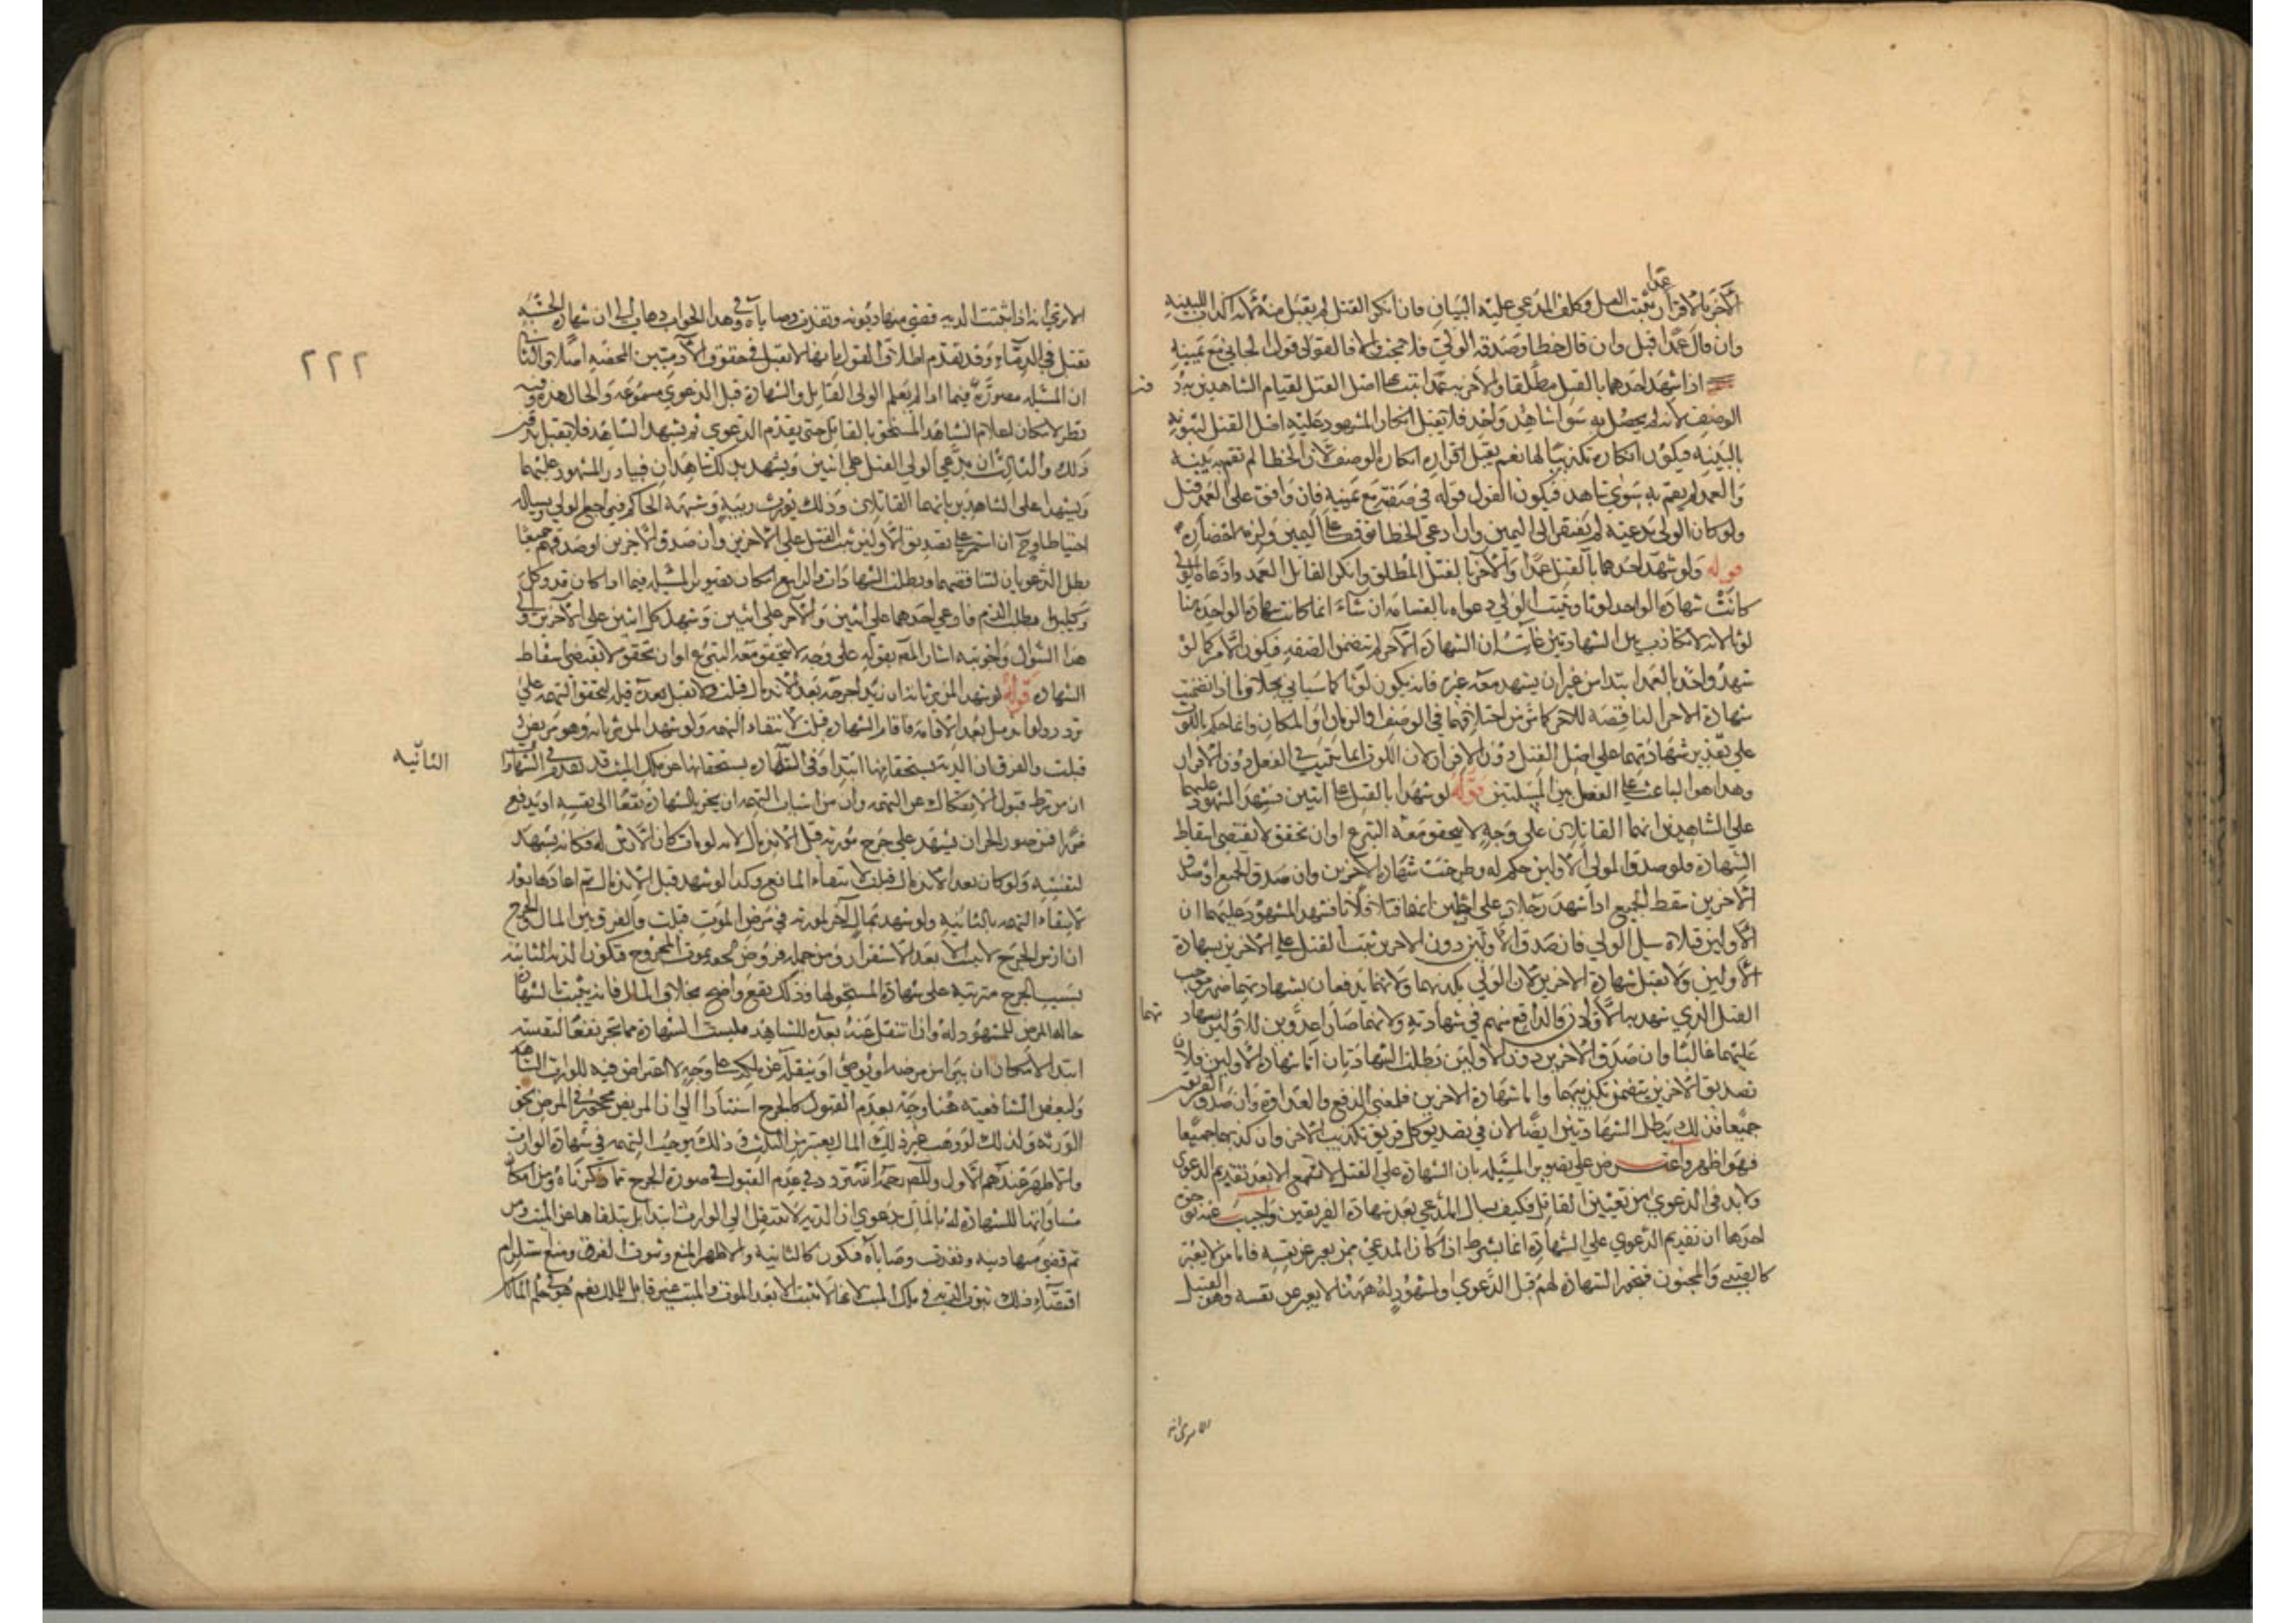 عمدا
الآخر بالاقرار ثبت القتل وكلف المدعي عليه البيان فان انكر القتل لم يقبل منه لانه اكذاب للبينه
وان قال عمدا قبل وان قال خطا وصدقه الولي فلا بحث والا فالقول قول الجاني مع يمينه
اذا شهد احدهما بالقتل مطلقا والآخر به عمدا ثبت اصل القتل لقيام الشاهدين به دون
الوصف لانه لم يحصل به سوا شاهد واحد فلا يقبل انكار المشهود عليه اصل القتل لثبوته
بالبينه فيكون انكاره تكذيبا لها نعم يقبل اقراره انكاره الوصف لان الخطا لم تقم به بينه
والعمد لم يقم به سوي شاهد فيكون القول قوله في صفته مع يمينه فان وافق على العمد قبل
ولو كان الولي يدعيه لم يفتقر الى اليمين وان ادعي الخطا توقف على اليمين ولزمه
قوله ولو شهد احدهما بالقتل عمدا والآخر بالقتل المطلق وانكر القاتل العمد وادعاه الولي
كانت شهادة الواحد لوثا ويثبت الولي دعواه بالقسامه ان شاء انما كانت شهادة الواحد هنا
لوثا لانه لا تكاذب بين الشهادتين غايته ان الشهادة الآخر لم تتضمن الصفه فيكون الامر كما لو
شهد واحد بالعمد ابتدا من غير ان يشهد معه غيره فانه يكون لوثا كما سياتي بخلاف ما اذا تضمنت
شهادة الاخر المناقضه للآخر كما مر من اختلافهما في الوصف او الزمان او المكان وانما حكم باللوث
على تقدير شهادتهما على اصل القتل دون الاقرار لان اللوث انما يثبت في الفعل دون الاقرار
وهذا هو الباعث على الفصل بين المسئلتين قوله لو شهدا بالقتل على اثنين فشهد المشهود عليهما
على الشاهدين انهما القاتلان على وجه لا يتحقق معه التبرع او ان تحقق لا يقتضي اسقاط
الشهادة فلو صدق الولي الاولين حكم له وطرحت شهادة الاخرين وان صدق الجميع او صدق
الآخرين سقط الجميع اذا شهد رجلان على اثنين انهما قتلا فلانا فشهد المشهود عليهما ان
الاولين قتلاه سئل الولي فان صدق الاولين دون الاخرين ثبت القتل على الاخرين بشهادة
الاولين ولا تقبل شهادة الاخرين لان الولي يكذبهما ولانهما يدفعان بشهادتهما ضرر موجب
القتل الذي شهد به الاولان والدافع متهم في شهادته ولانهما صارا عدوين للاولين بشهاد
تهما
عليهما غالبا وان صدق الآخرين دون الاولين بطلت الشهادتان اما شهادة الاولين فلان
تصديق الآخرين يتضمن تكذيبهما واما شهادة الاخرين فلمعنى الدفع والعداوة وان صدق الفريقين
جميعا فذلك يبطل الشهادتين ايضا لان في تصديق كل فريق تكذيب الآخر وان كذبهما جميعا
فهو اظهر واعترض على تصوير المسئله بان الشهادة على القتل لا تسمع الا بعد تقديم الدعوى
ولا بد في الدعوى من تعيين القاتل فكيف يسال المدعي بعد شهادة الفريقين واجيب عنه بوجوه
احدها ان تقديم الدعوى على الشهادة انما يشترط اذا كان المدعي ممن يعبر عن نفسه فاما من لا يعبر
كالصبي والمجنون فتجوز الشهادة لهم قبل الدعوى والمشهود له ههنا لا يعبر عن نفسه وهو القتيل
الا ترى انه
٢٢٢
الا ترى انه اذا ثبتت الديه قضي منها ديونه وتنفذت وصاياه وفي هذا الجواب ذهاب الى ان شهادة الحسبه
تقبل في الدماء وقد تقدم اطلاق القول بانها لا تقبل في حقوق الآدميين المحضه اصلا والثاني
ان المسئله مصورة فيما اذا لم يعلم الولي القاتل والشهادة قبل الدعوى مسموعه والحال هذه وفيه
نظر لامكان اعلام الشاهد المستحق بالقاتل حتى يقدم الدعوى ثم يشهد الشاهد فلا يقبل بدون
ذلك والثالث ان يدعي الولي القتل على اثنين ويشهد بذلك شاهدان فيبادر المشهود عليهما
ويشهدا على الشاهدين بانهما القاتلان وذلك يورث ريبة وشبهة الحاكم فيراجع الولي ويساله
احتياطا وح ان استمر على تصديق الاولين ثبت القتل على الآخرين وان صدق الآخرين او صدقهم جميعا
بطل الدعويان لتناقضهما وبطلت الشهادات والرابع امكان تصوير المسئله فيما اذا كان قد وكل
وكيلين بطلب الدم فادعى احدهما على اثنين والآخر على اثنين وشهد كل اثنين على الآخرين والى
هذا السؤال واجوبته اشار المص بقوله على وجه لا يتحقق معه التبرع او ان تحقق لا يقتضي اسقاط
الشهادة قوله لو شهدا لمن يرثانه ان زيدا جرحه بعد الاندمال قبلت ولا تقبل بعده قبله لتحقق التهمه على
تردد ولو اندمل بعد الاقامه فاقام الشهادة قبلت لانتفاء التهمه ولو شهدا لمن يرثانه وهو مريض
قبلت والفرق ان الديه يستحقانها ابتداء وفي الشهادة يستحقانها من ملك الميت قد تقدم في الشهادات
الثانيه
ان من شرط قبول الانفكاك عن التهمه وان من اسباب التهمه ان يجر بالشهادة نفعا الى نفسه او يدفع
ضررا فمن صور الجر ان يشهد على جرح مورثه قبل الاندمال لانه لو مات كان الارش له فكانه يشهد
لنفسه ولو كان بعد الاندمال قبلت لانتفاء المانع وكذا لو شهد قبل الاندمال ثم اعادها بعد
لانتفاء التهمه بالثانيه ولو شهد بمال آخر لمورثه في مرض الموت قبلت والفرق بين المال والجرح
ان ارش الجرح لا يثبت الا بعد الاستقرار ومن جمله فروضه لحوقه بموت المجروح فتكون الديه الثابته
بسبب الجرح مترتبه على شهادة المستحق لها وذلك نفع واضح بخلاف المال فانه يثبت بالشهادة
حاله المرض للمشهود له وان انتقل عنه بعده للشاهد فليست الشهادة مما تجر نفعا لنفسه
ابتدا لامكان ان يبرا من مرضه او يوصي او ينقله عن ملكه على وجه لا اعتراض فيه للوارث الشاهد
ولبعض الشافعيه هنا وجه بعدم القبول كالجرح استنادا الى ان المريض محجور في المرض بحق
الورثه ولذلك لو وهب غير ذلك المال يعتبر من الثلث وذلك يوجب التهمه في شهادة الوارث
والاظهر عندهم الاول وللمص رحمه الله تردد في عدم القبول في صورة الجرح مما ذكرناه ومن امكان
مساواتها للشهادة له بالمال بدعوى ان الديه لا تنتقل الى الوارث ابتدا بل يتلقاها عن الميت ومن
ثم قضي منها دينه ونفذت وصاياه فتكون كالثانيه والاظهر المنع وثبوت الفرق ومنع استلزام
اقتضاء ذلك ثبوت الديه في ملك الميت لانها لا تثبت الا بعد الموت والميت غير قابل للملك نعم هو في حكم المالك